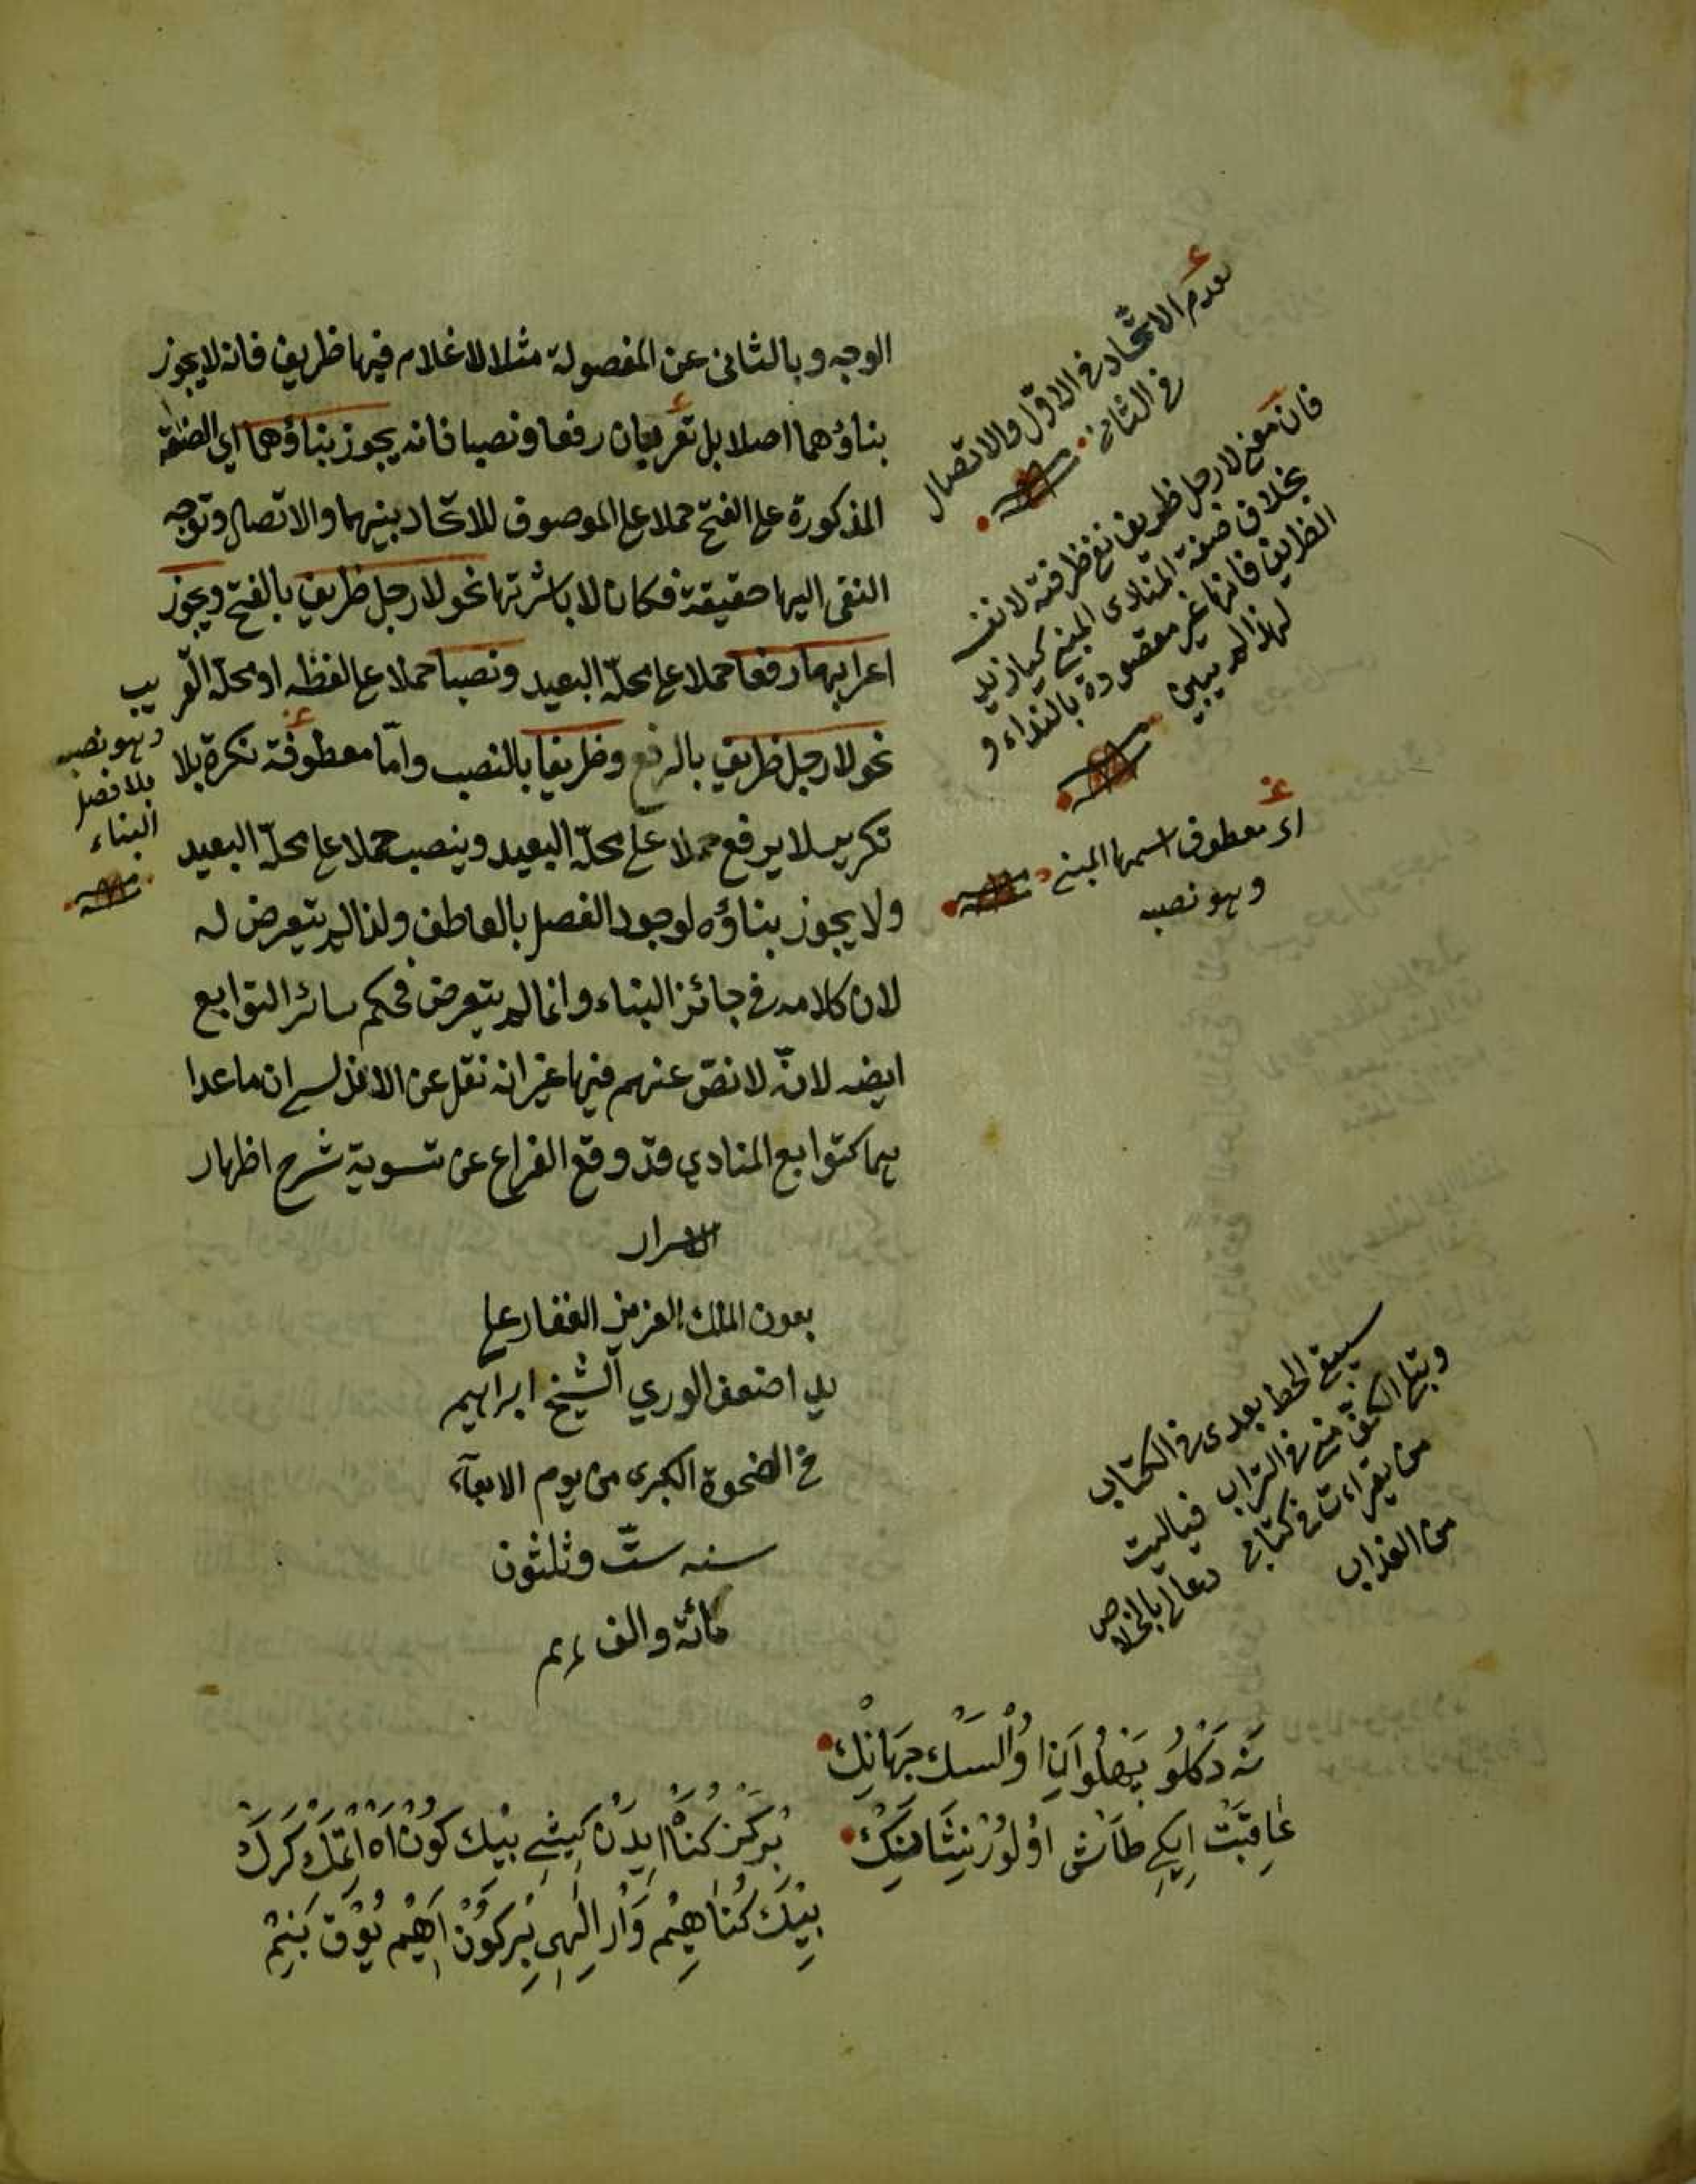 الوجه وبالثانى عن المفصولة مثلا لا غلام فيها ظريف فانه لا يجوز
بناؤهما اصلا بل تعربان رفعا ونصبا فانه يجوز بناؤهما اي الصفة
المذكورة على الفتح حملا على الموصوف للاتحاد بينهما والاتصال وتوجه
النفى اليها حقيقة فكان لا باشرتها نحو لا رجل ظريف بالفتح ويجوز
اعرابهما رفعا حملا على محلّه البعيد ونصبا حملا على لفظه او محلّه القريب
نحو لا رجل ظريف بالرفع وظريفا بالنصب وامّا معطوفة نكرة بلا
تكرير لا يرفع حملا على محلّه البعيد وينصب حملا على محلّه البعيد
ولا يجوز بناؤه لوجود الفصل بالعاطف ولذا لم يتعرض له
لان كلامه فى جائز البناء وانما لم يتعرض فى حكم سائر التوابع
ايضه لانّه لا نصّ عنهم فيها غير انه نقل عن الاندلسى ان ما عدا
هما كتوابع المنادي قد وقع الفراغ عن تسوية شرح اظهار
الاسرار
بعون الملك العزيز الغفار على
يد اضعف الوري الشيخ ابراهيم
فى الضحوة الكبرى من يوم الاربعآء
سنه ستّ وثلثون
مائة والف
لعدم الاتّحاد فى الاوّل والاتصال
فى الثانى
فان معنى لا رجل ظريف نفى ظرافته لا نفسه
بخلاف صفة المنادى المبنى كيا زيد
الظريف فانها غير مقصودة بالنداء و
لهذا لم يبين
اى معطوف اسمها المبنى
وهو نصبه
وهو نصبه
بلا فصل
البناء
سيبقى الخط بعدى فى الكتاب
ويبلى الكفّ منى فى التراب فياليت
من يقراء كتابى دعا لى بالخلاص
من العذاب
نَه دَكْلُو پَهْلُوَانِ اوُلْسَكْ جِهَانِكْ
عَاقِبَتْ اِيكِى طَاش اوُلُورْ نِشَانِكْ
بُركَزْ كُنَاْه ايدَنْ كِيشِى بِيْك كَوُنْ اَه اتْمَكْ كَرَكْ
بِيْكْ كُنَاهِيْم وَارْ اِلٰهِى بِرْ كَوُنْ اَهِيْم يُوْقْ بَنِيْم